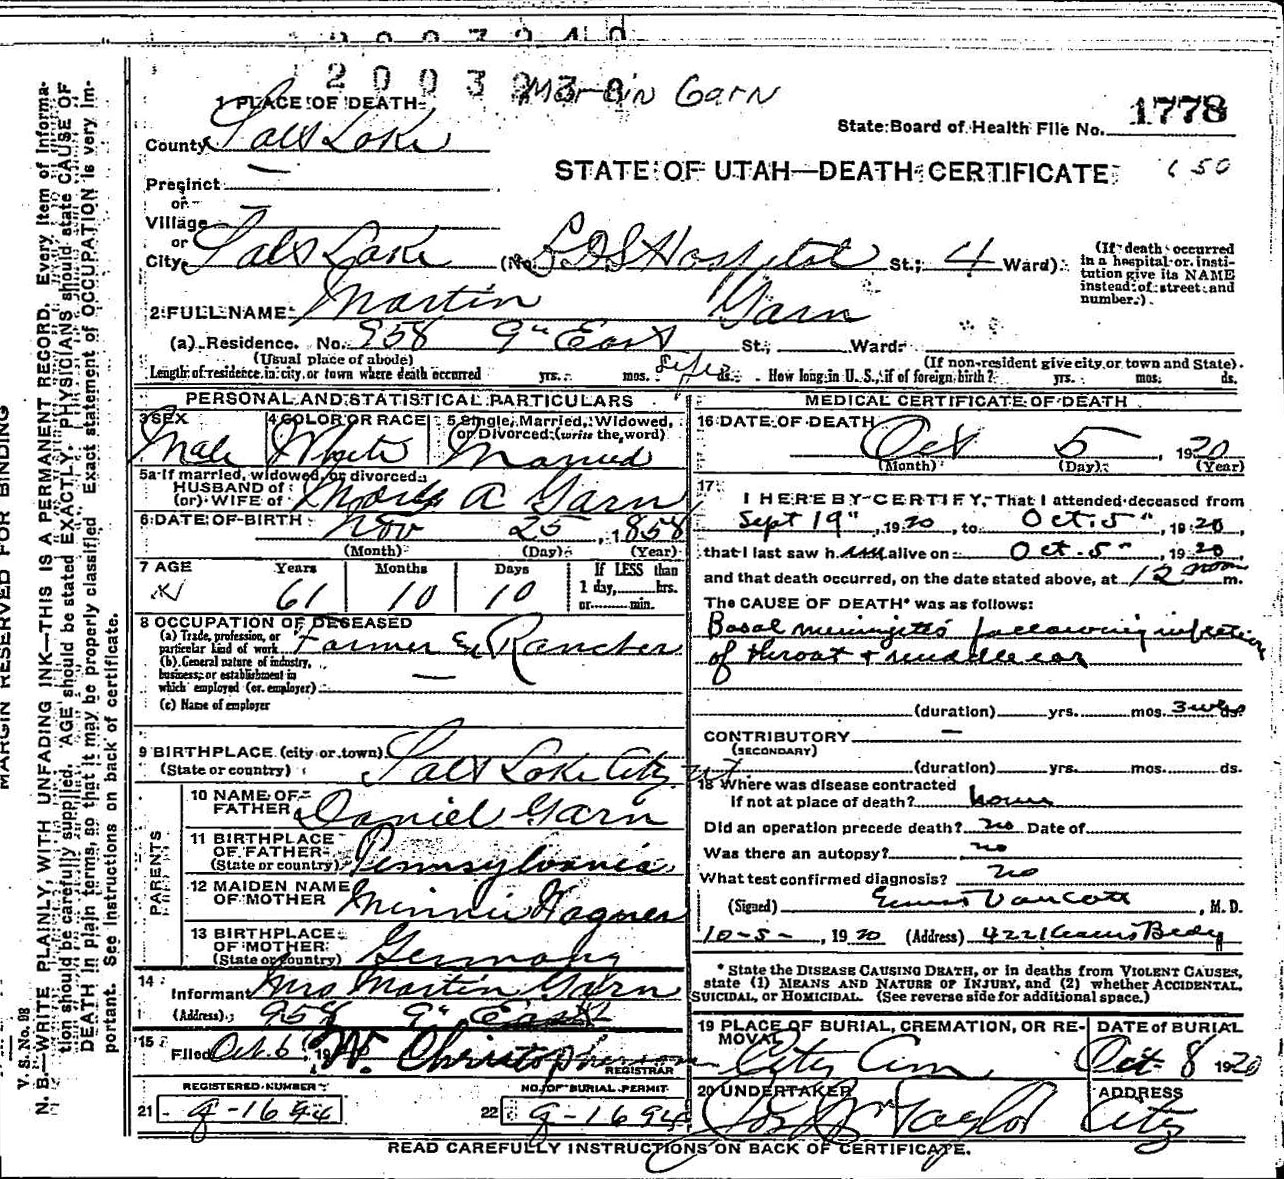 2003238 Martin Garn
1 PLACE OF DEATH
State Board of Health File No. 1778
County Salt Lake
STATE OF UTAH—DEATH CERTIFICATE
Precinct —
or
Village —
or
City Salt Lake (No. LDS Hospital St.; 4 Ward)
(If death occurred in a hospital or institution give its NAME instead of street and number.)
2 FULL NAME Martin Garn
(a) Residence. No. 958 9" East St.; Ward
(Usual place of abode) (If non-resident give city or town and State)
Length of residence in city or town where death occurred yrs. mos. Life ds. How long in U. S., if of foreign birth? yrs. mos. ds.
PERSONAL AND STATISTICAL PARTICULARS
3 SEX Male
4 COLOR OR RACE White
5 Single, Married, Widowed, or Divorced (write the word) Married
5a If married, widowed, or divorced
HUSBAND of
(or) WIFE of A Garn
6 DATE OF BIRTH Nov 25, 1858
(Month) (Day) (Year)
7 AGE Years Months Days If LESS than
61 10 10 1 day, hrs.
or min.
8 OCCUPATION OF DECEASED
(a) Trade, profession, or particular kind of work Farmer & Rancher
(b) General nature of industry, business, or establishment in which employed (or employer) —
(c) Name of employer
9 BIRTHPLACE (city or town) Salt Lake City Ut.
(State or country)
PARENTS
10 NAME OF FATHER Daniel Garn
11 BIRTHPLACE OF FATHER Pennsylvania
(State or country)
12 MAIDEN NAME OF MOTHER Minnie Wagner
13 BIRTHPLACE OF MOTHER Germany
(State or country)
14 Informant Mrs Martin Garn
(Address) 958 9" East
15 Filed Oct 6, 19 W. Christopherson
REGISTRAR
REGISTERED NUMBER NO. OF BURIAL PERMIT
21 G-1694 22 G-1694
MEDICAL CERTIFICATE OF DEATH
16 DATE OF DEATH Oct 5, 1920
(Month) (Day) (Year)
17 I HEREBY CERTIFY, That I attended deceased from
Sept 19", 1920, to Oct. 5", 1920,
that I last saw him alive on Oct. 5", 1920,
and that death occurred, on the date stated above, at 12 noon m.
The CAUSE OF DEATH* was as follows:
Basal meningitis following infection
of throat + middle ear
(duration) yrs. mos. 3 wks ds.
CONTRIBUTORY —
(SECONDARY)
(duration) yrs. mos. ds.
18 Where was disease contracted
if not at place of death? home
Did an operation precede death? no Date of
Was there an autopsy? no
What test confirmed diagnosis? no
(Signed) Van Cott, M. D.
10-5-, 1920 (Address) 422 Bldg
* State the DISEASE CAUSING DEATH, or in deaths from VIOLENT CAUSES,
state (1) MEANS AND NATURE OF INJURY, and (2) whether ACCIDENTAL,
SUICIDAL, or HOMICIDAL. (See reverse side for additional space.)
19 PLACE OF BURIAL, CREMATION, OR REMOVAL City Cem
DATE of BURIAL Oct 8 1920
20 UNDERTAKER Jos Wm Taylor
ADDRESS City
READ CAREFULLY INSTRUCTIONS ON BACK OF CERTIFICATE.
MARGIN RESERVED FOR BINDING
V. S. No. 98
N. B.—WRITE PLAINLY, WITH UNFADING INK—THIS IS A PERMANENT RECORD. Every item of information
should be carefully supplied. AGE should be stated EXACTLY. PHYSICIANS should state CAUSE OF
DEATH in plain terms, so that it may be properly classified. Exact statement of OCCUPATION is very important.
See instructions on back of certificate.